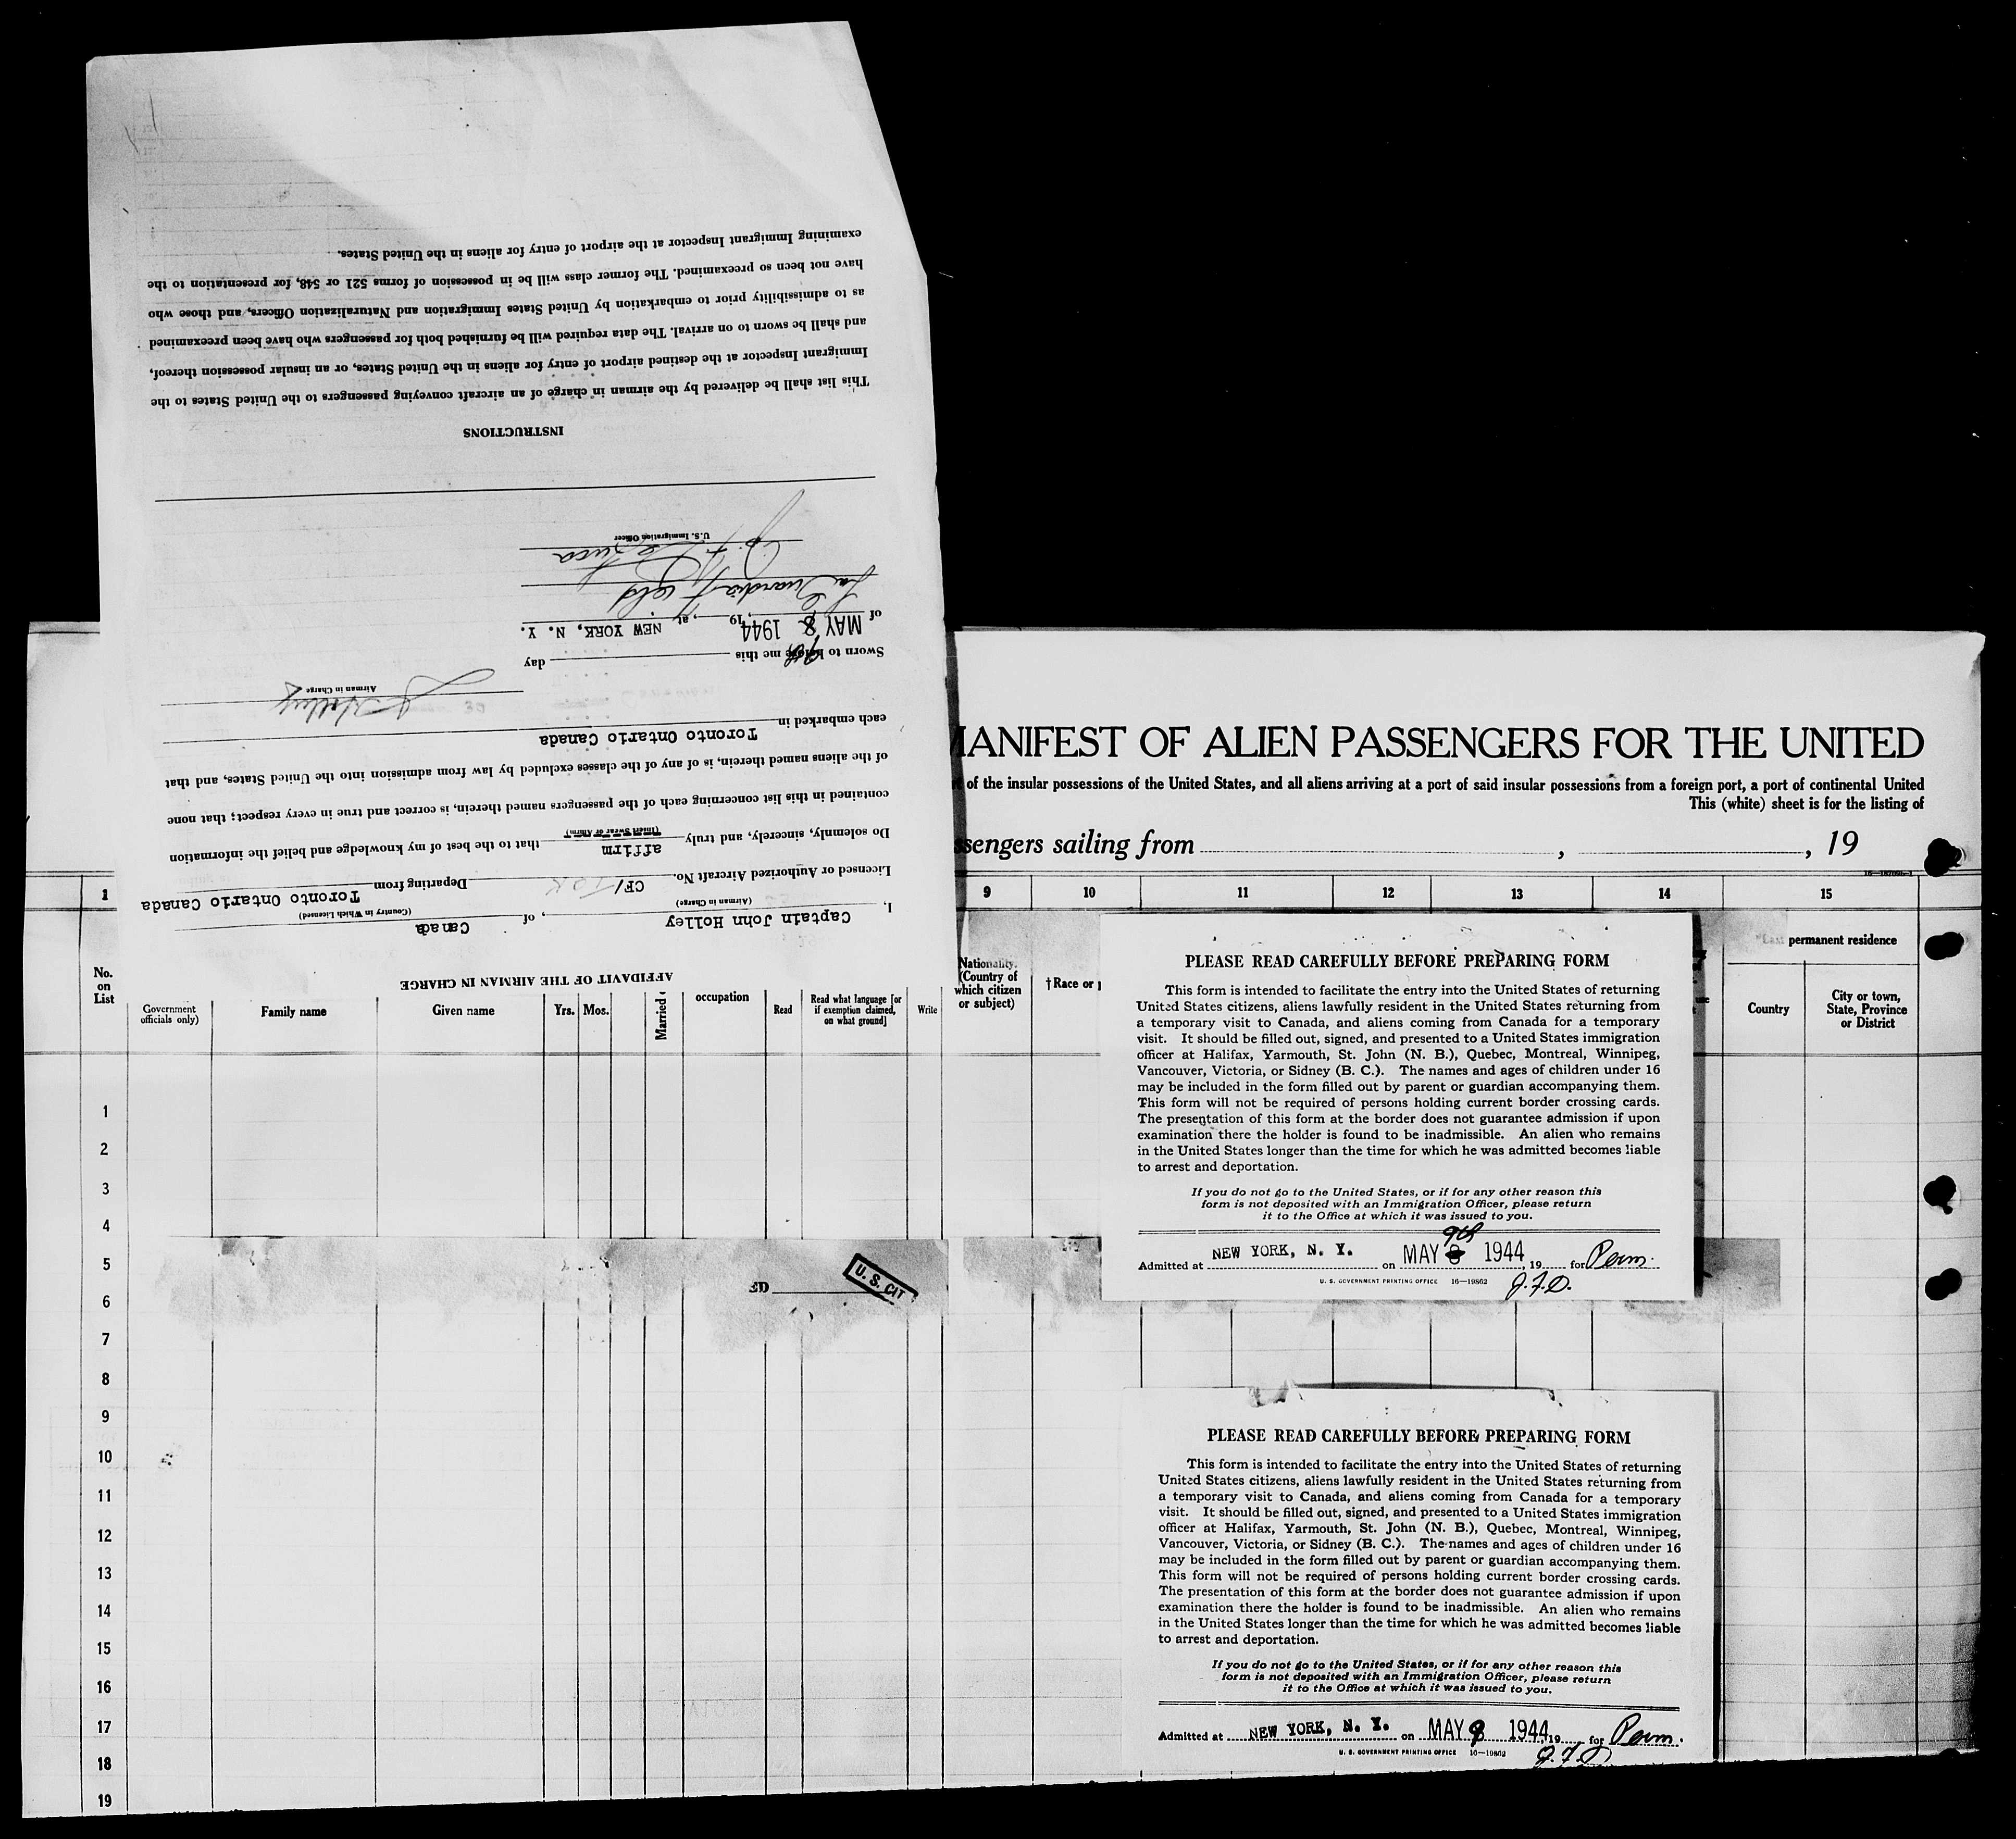 AFFIDAVIT OF THE AIRMAN IN CHARGE
I, Captain John Holley, of Canada
(Airman in Charge) (Country in Which Licensed)
Licensed or Authorized Aircraft No. CF/ Departing from Toronto Ontario Canada
Do solemnly, sincerely, and truly affirm that to the best of my knowledge and belief the information
(Insert Swear or Affirm)
contained in this list concerning each of the passengers named therein, is correct and true in every respect; that none
of the aliens named therein, is of any of the classes excluded by law from admission into the United States, and that
each embarked in Toronto Ontario Canada
J Holley
Airman in Charge
Sworn to before me this day
of MAY 8 1944, 19, at NEW YORK, N. Y.
La Guardia Field
U. S. Immigration Officer
INSTRUCTIONS
This list shall be delivered by the airman in charge of an aircraft conveying passengers to the United States to the
Immigrant Inspector at the destined airport of entry for aliens in the United States, or an insular possession thereof,
and shall be sworn to on arrival. The data required will be furnished both for passengers who have been preexamined
as to admissibility prior to embarkation by United States Immigration and Naturalization Officers, and those who
have not been so preexamined. The former class will be in possession of forms 521 or 548, for presentation to the
examining Immigrant Inspector at the airport of entry for aliens in the United States.
MANIFEST OF ALIEN PASSENGERS FOR THE UNITED
of the insular possessions of the United States, and all aliens arriving at a port of said insular possessions from a foreign port, a port of continental United
This (white) sheet is for the listing of
ssengers sailing from , , 19
1 9 10 11 12 13 14 15
No. on List
Government officials only)
Family name
Given name
Yrs.
Mos.
Married
occupation
Read
Read what language [or if exemption claimed, on what ground]
Write
Nationality. (Country of which citizen or subject)
†Race or
permanent residence
Country
City or town, State, Province or District
1
2
3
4
5
6
7
8
9
10
11
12
13
14
15
16
17
18
19
ED
U. S. CIT
PLEASE READ CAREFULLY BEFORE PREPARING FORM
This form is intended to facilitate the entry into the United States of returning
United States citizens, aliens lawfully resident in the United States returning from
a temporary visit to Canada, and aliens coming from Canada for a temporary
visit. It should be filled out, signed, and presented to a United States immigration
officer at Halifax, Yarmouth, St. John (N. B.), Quebec, Montreal, Winnipeg,
Vancouver, Victoria, or Sidney (B. C.). The names and ages of children under 16
may be included in the form filled out by parent or guardian accompanying them.
This form will not be required of persons holding current border crossing cards.
The presentation of this form at the border does not guarantee admission if upon
examination there the holder is found to be inadmissible. An alien who remains
in the United States longer than the time for which he was admitted becomes liable
to arrest and deportation.
If you do not go to the United States, or if for any other reason this
form is not deposited with an Immigration Officer, please return
it to the Office at which it was issued to you.
9th
Admitted at NEW YORK, N. Y. on MAY 8 1944, 19 for Perm.
U. S. GOVERNMENT PRINTING OFFICE 16—19862
J.F.D.
PLEASE READ CAREFULLY BEFORE PREPARING FORM
This form is intended to facilitate the entry into the United States of returning
United States citizens, aliens lawfully resident in the United States returning from
a temporary visit to Canada, and aliens coming from Canada for a temporary
visit. It should be filled out, signed, and presented to a United States immigration
officer at Halifax, Yarmouth, St. John (N. B.), Quebec, Montreal, Winnipeg,
Vancouver, Victoria, or Sidney (B. C.). The names and ages of children under 16
may be included in the form filled out by parent or guardian accompanying them.
This form will not be required of persons holding current border crossing cards.
The presentation of this form at the border does not guarantee admission if upon
examination there the holder is found to be inadmissible. An alien who remains
in the United States longer than the time for which he was admitted becomes liable
to arrest and deportation.
If you do not go to the United States, or if for any other reason this
form is not deposited with an Immigration Officer, please return
it to the Office at which it was issued to you.
Admitted at NEW YORK, N. Y. on MAY 9 1944, 19 for Perm.
U. S. GOVERNMENT PRINTING OFFICE 16—19862
J.F.D.